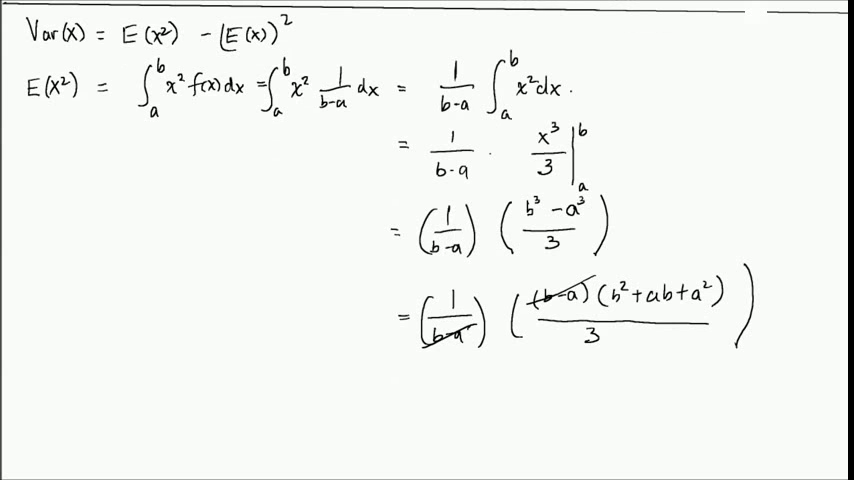 Var(x) = E(x²) - [E(x)]²
E(X²) = ∫ₐᵇ x² f(x) dx = ∫ₐᵇ x² 1/(b-a) dx = 1/(b-a) ∫ₐᵇ x² dx.
= 1/(b-a) · x³/3 |ₐᵇ
= (1/(b-a)) ((b³ - a³)/3)
= (1/(b-a)) ((b-a)(b² + ab + a²)/3)